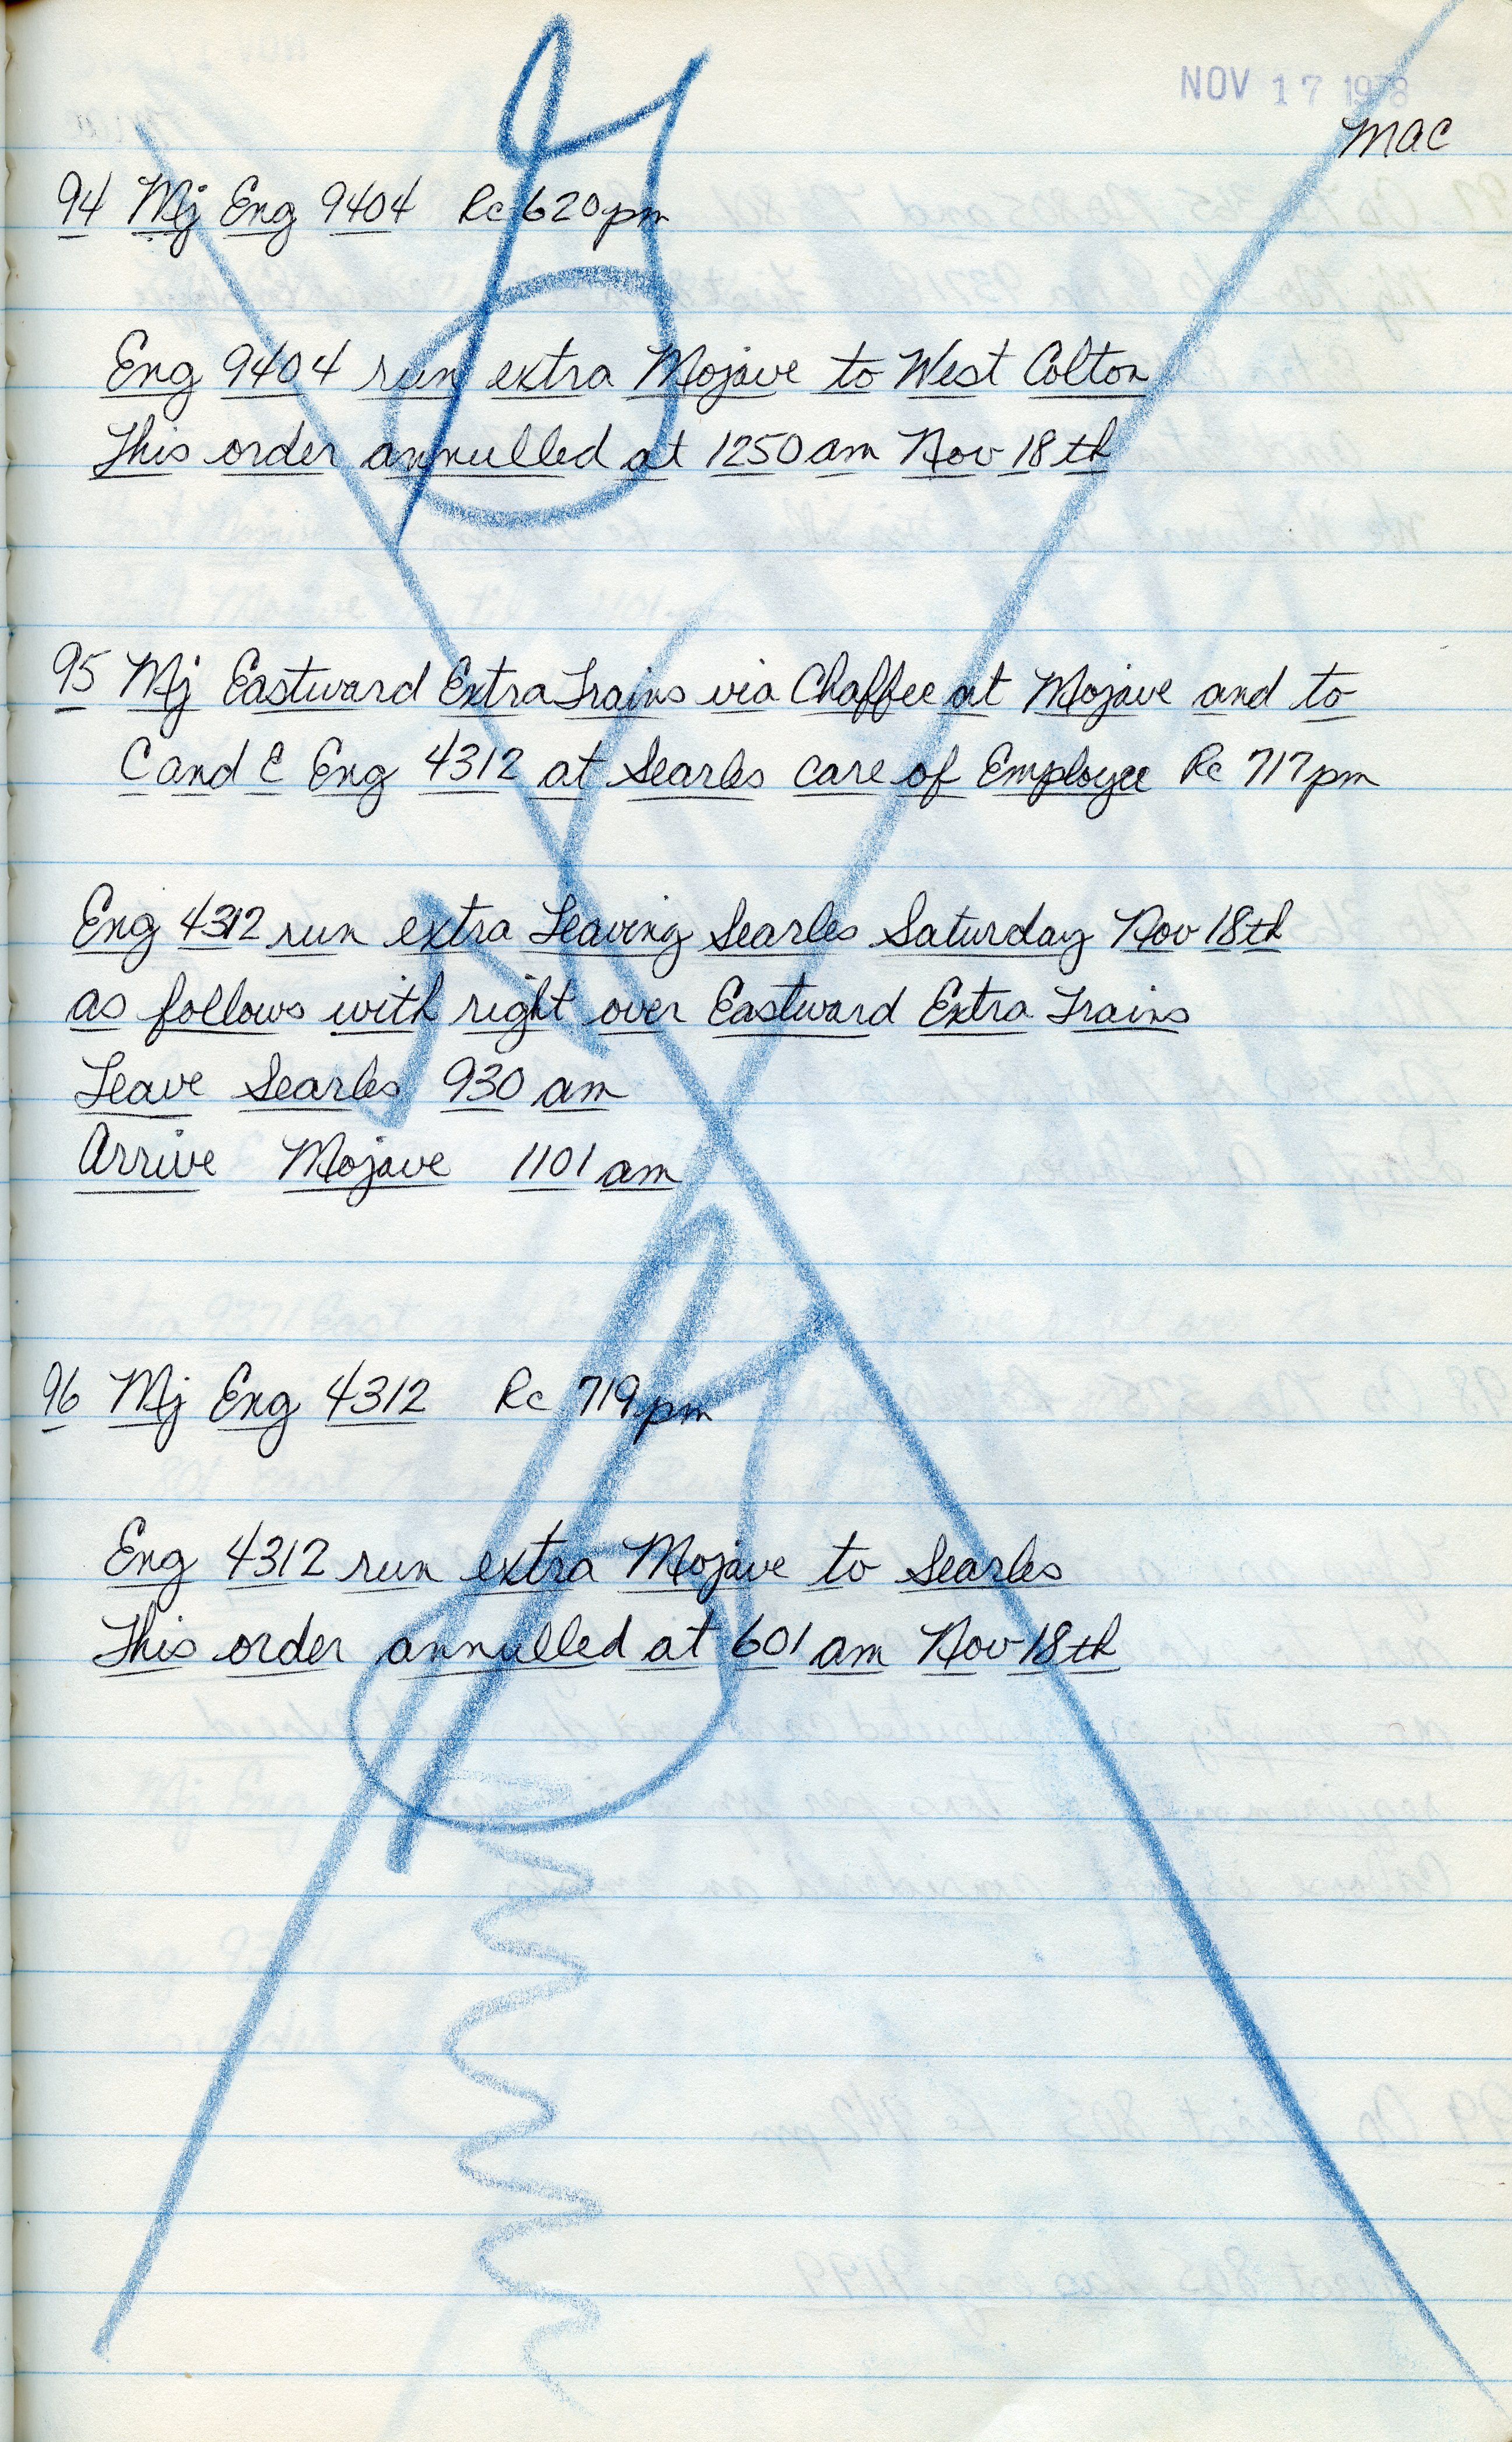 NOV 17 1978
MAC
94 Mj Eng 9404 Rc 620pm
Eng 9404 run extra Mojave to West Colton
This order annulled at 1250am Nov 18th
95 Mj Eastward Extra Trains via Chaffee at Mojave and to
C and E Eng 4312 at Searles care of Employee Rc 717pm
Eng 4312 run extra Leaving Searles Saturday Nov 18th
as follows with right over Eastward Extra Trains
Leave Searles 930 am
Arrive Mojave 1101 am
96 Mj Eng 4312 Rc 719pm
Eng 4312 run extra Mojave to Searles
This order annulled at 601 am Nov 18th